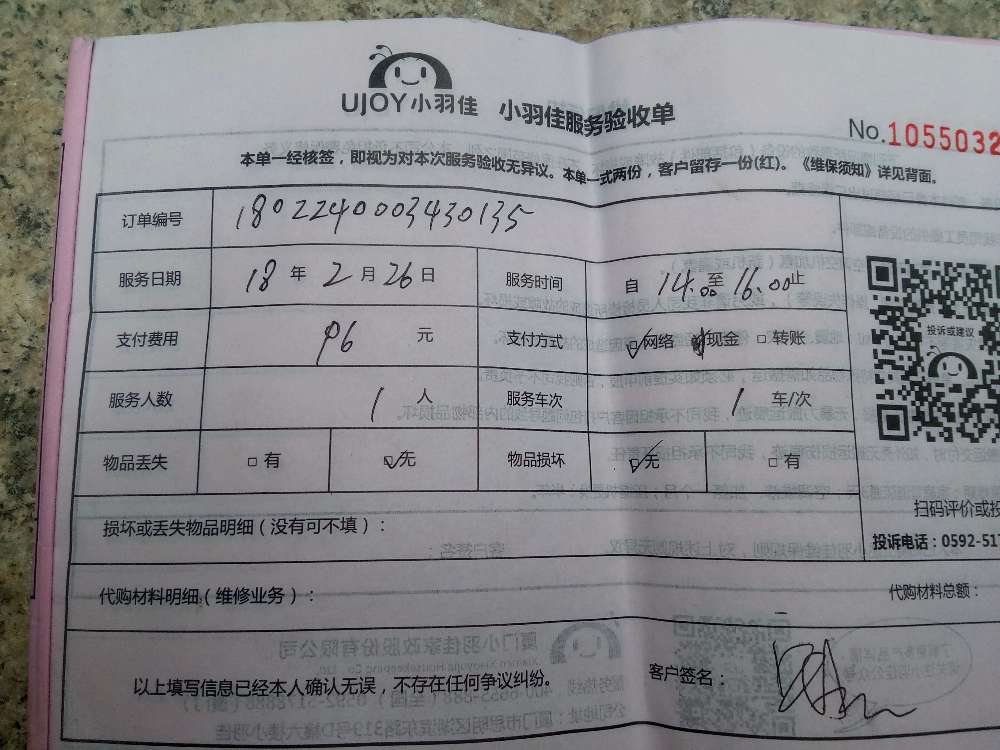 UJOY小羽佳 小羽佳服务验收单
No.1055032
本单一经核签，即视为对本次服务验收无异议。本单一式两份，客户留存一份(红)。《维保须知》详见背面。
订单编号 1802240003430135
服务日期 18 年 2 月 26 日 服务时间 自 14.00 至 16.00 止
支付费用 96 元 支付方式 ☑网络 现金 □转账
投诉或建议
服务人数 1 人 服务车次 1 车/次
物品丢失 □有 ☑无 物品损坏 ☑无 □有
扫码评价或投
损坏或丢失物品明细（没有可不填）：
投诉电话：0592-517
代购材料明细（维修业务）： 代购材料总额：
以上填写信息已经本人确认无误，不存在任何争议纠纷。 客户签名：